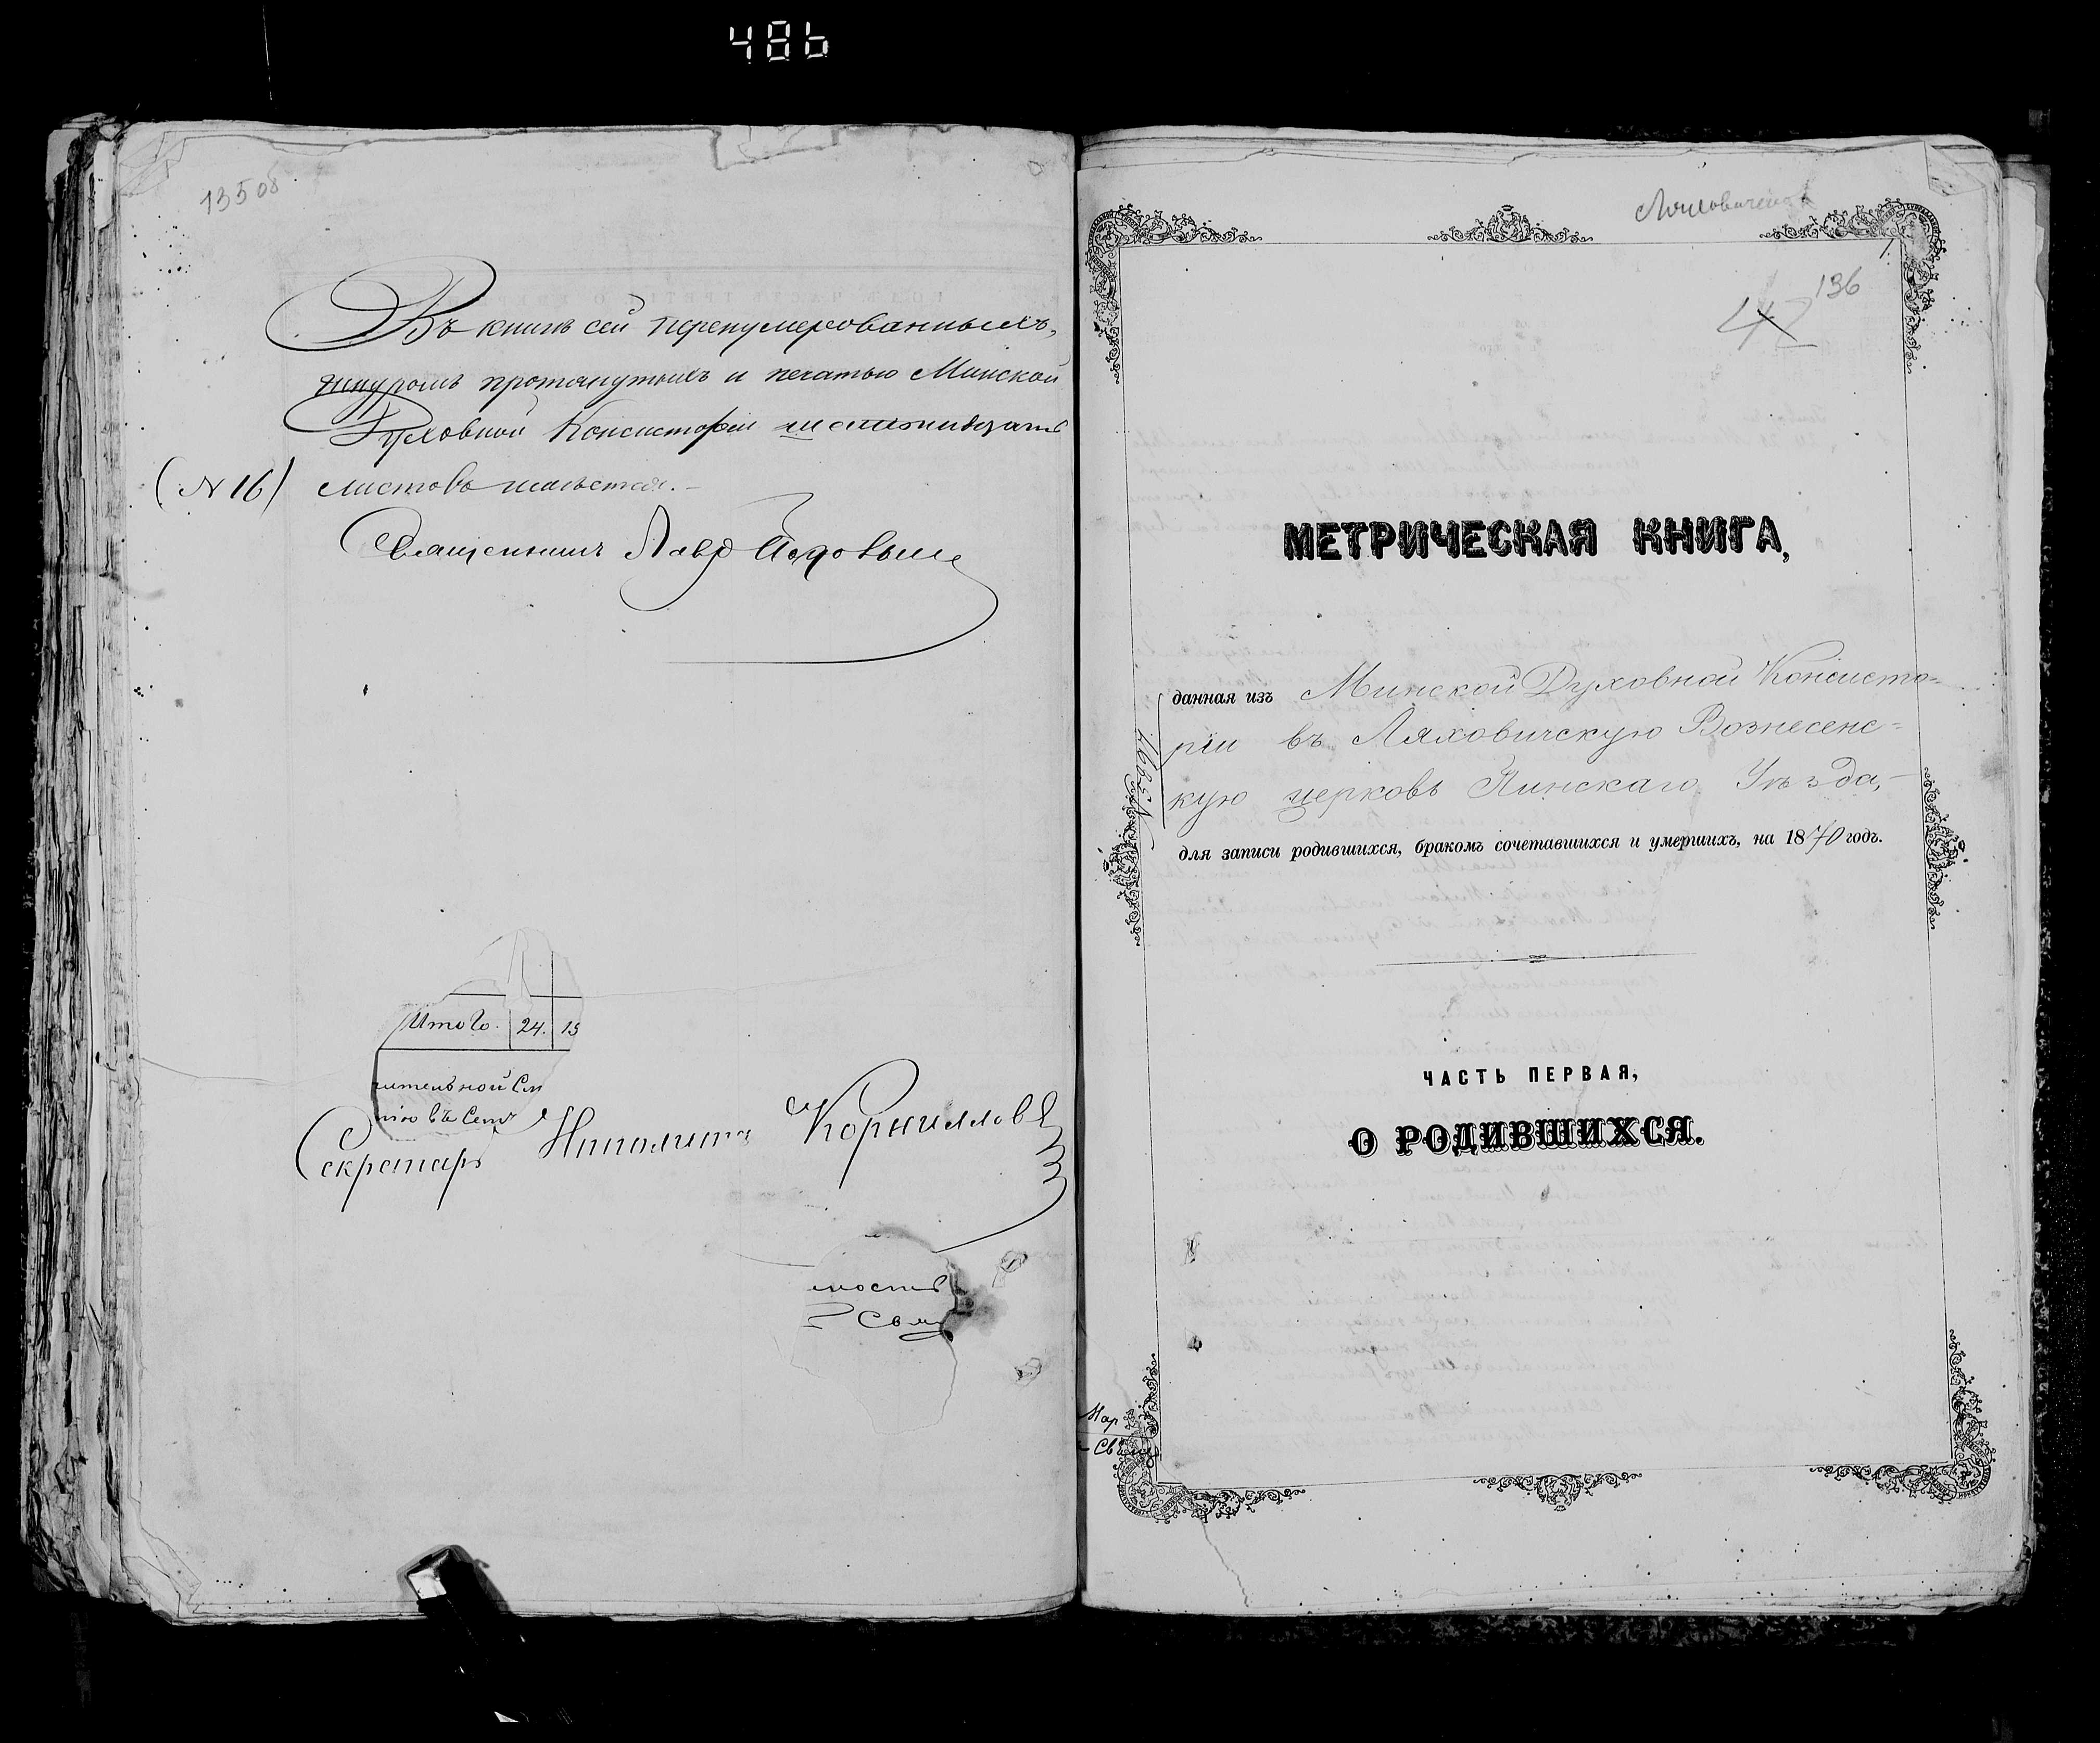 486
135об
Въ книгѣ сей перенумерованныхъ,
шнуромъ протянутыхъ и печатью Минской
Духовной Консисторіи шестнадцать
(N 16) листовъ имѣется.
Священникъ
Итого. 24. 13
ительной
Секретарь Ипполитъ Корнилловъ
ность
Ляховичская
1.
136
42
МЕТРИЧЕСКАЯ КНИГА,
данная изъ Минской Духовной Консисто-
ріи въ Ляховичскую Вознесенс-
кую церковь Пинскаго Уѣзда,
для записи родившихся, бракомъ сочетавшихся и умершихъ, на 1870 годъ.
ЧАСТЬ ПЕРВАЯ,
О РОДИВШИХСЯ.
Мар
Свящ